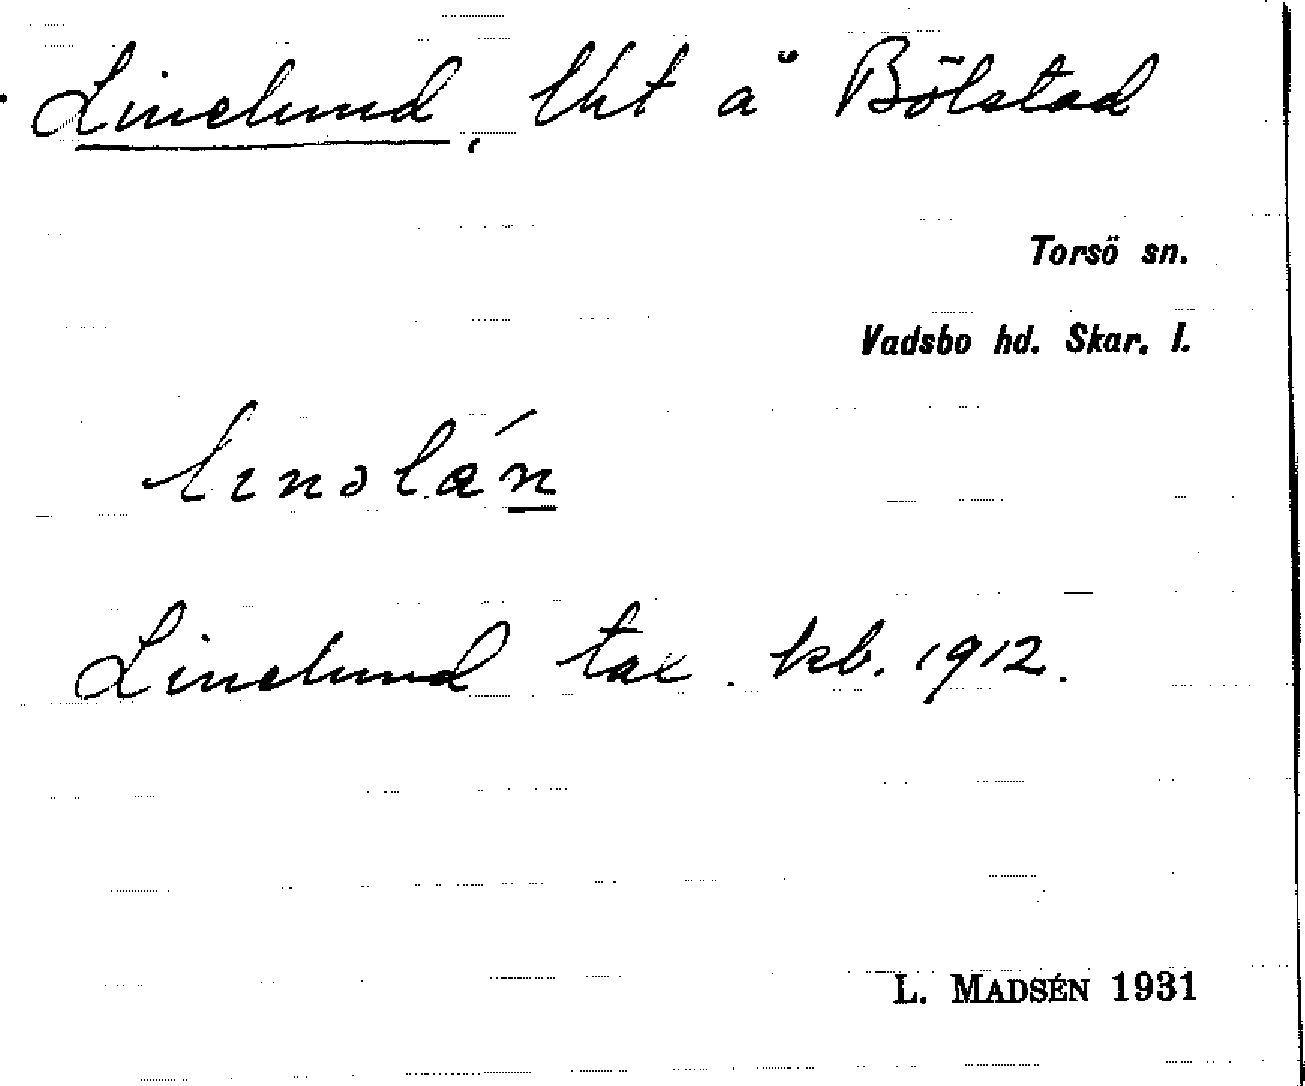 Linelund, lht å Bölstad
Torsö sn.
Vadsbo hd. Skar. l.
Linelund tax. kb. 1912.
L. MADSÉN 1931